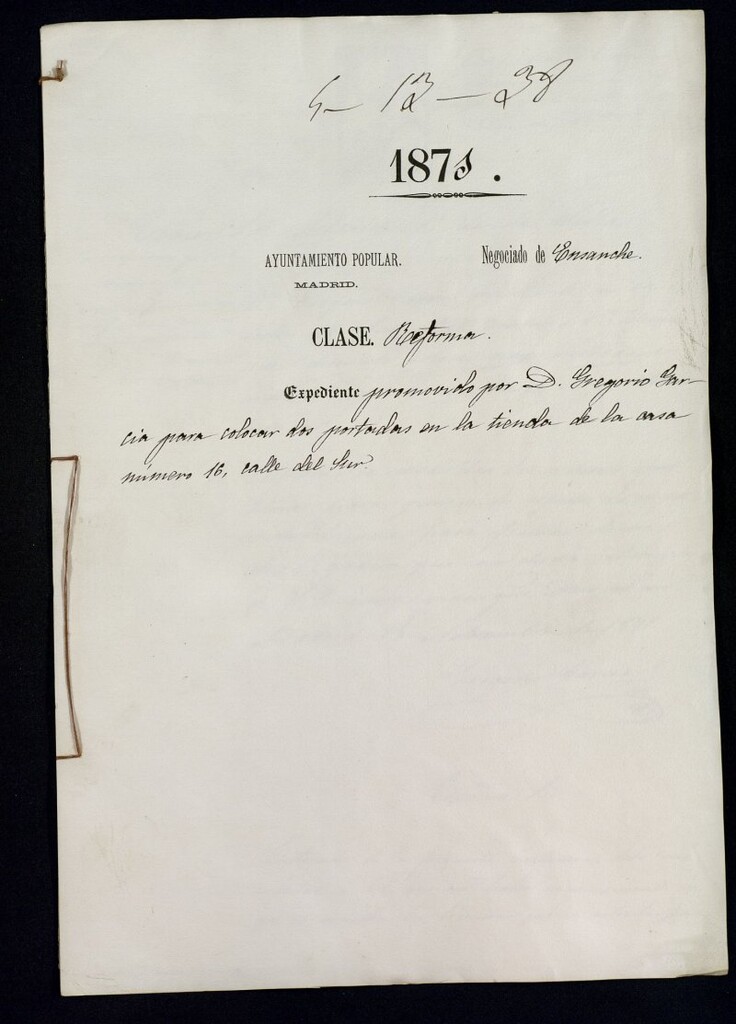 5 – 13 – 28
187
AYUNTAMIENTO POPULAR.
MADRID.
Negociado de Ensanche.
CLASE. Reforma.
Expediente promovido por D. Gregorio Gar-
cia para colocar dos portadas en la tienda de la casa
número 16, calle del Sur.